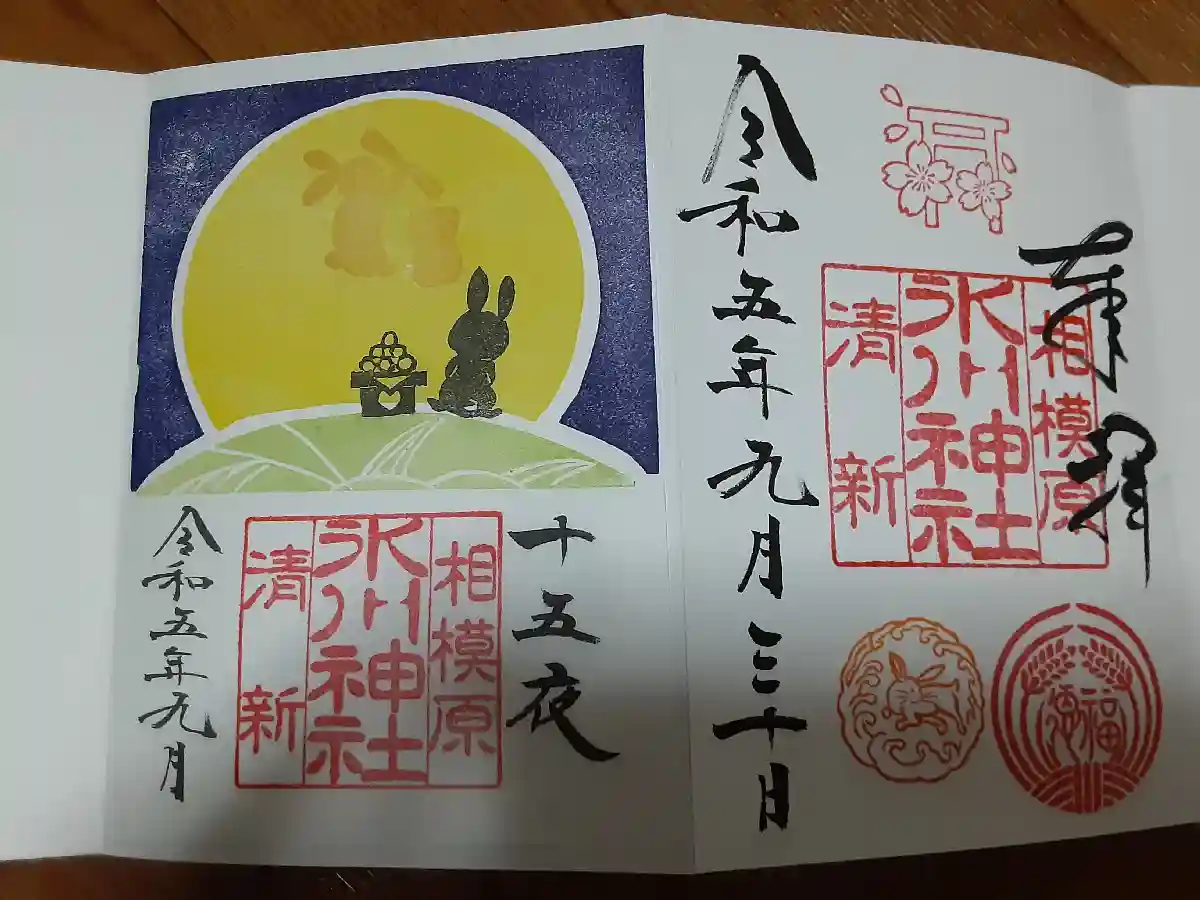 奉拝
相模原
氷川神社
清新
福
令和五年九月三十日
十五夜
相模原
氷川神社
清新
令和五年九月